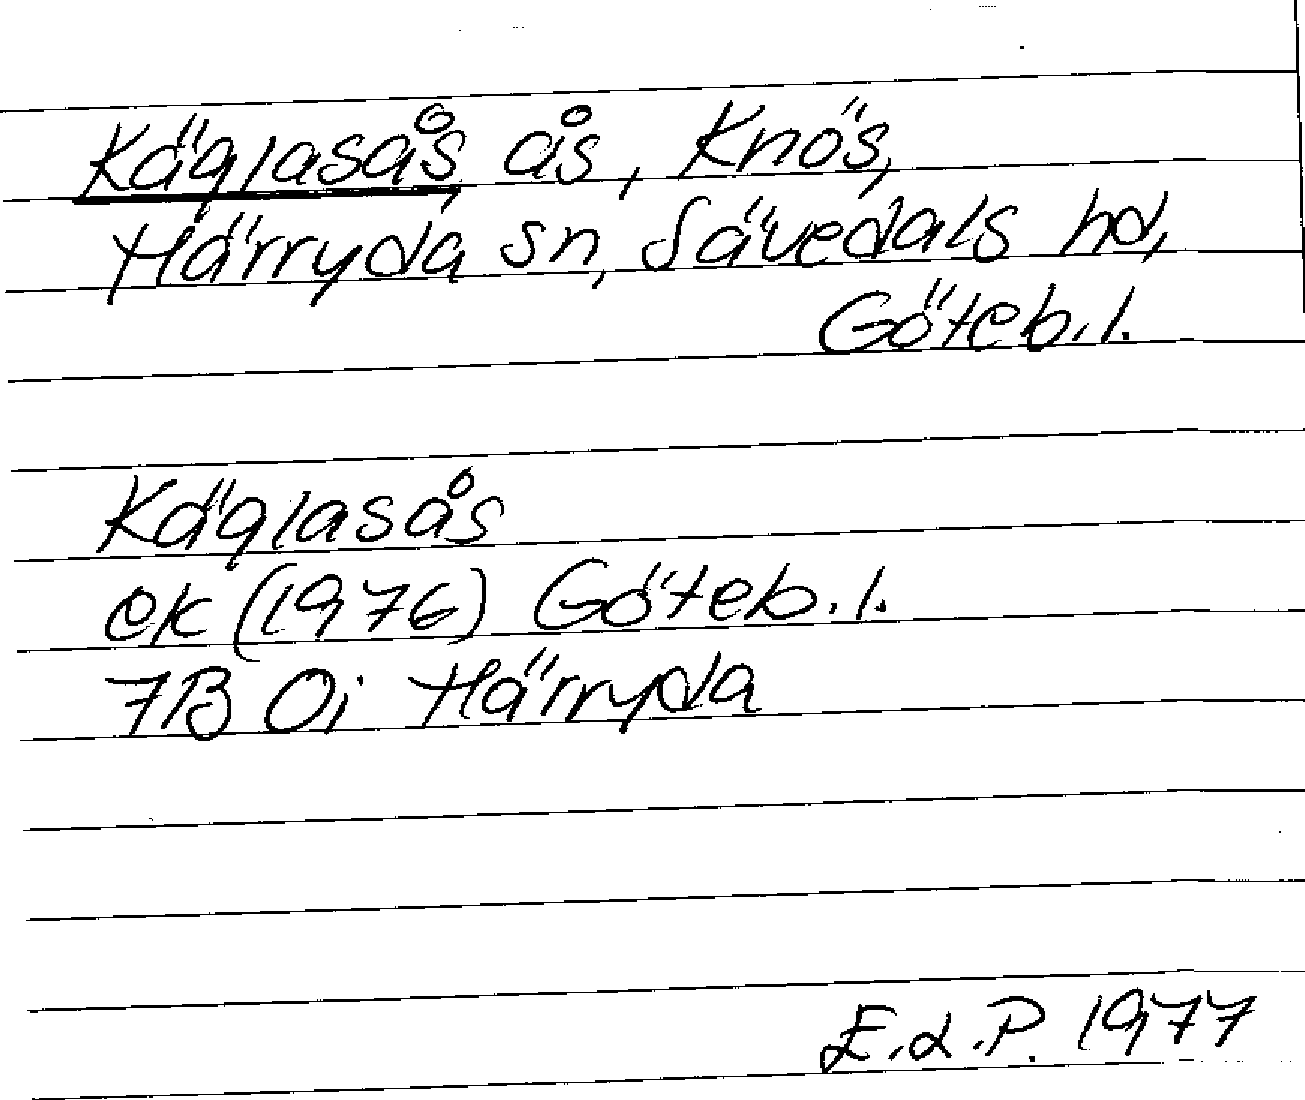 Käglasås, ås, Knös,
Härryda sn, Sävedals hd,
Göteb. l.
Käglasås
ek (1976) Göteb. l.
7B 0i Härryda
E. d. P. 1977